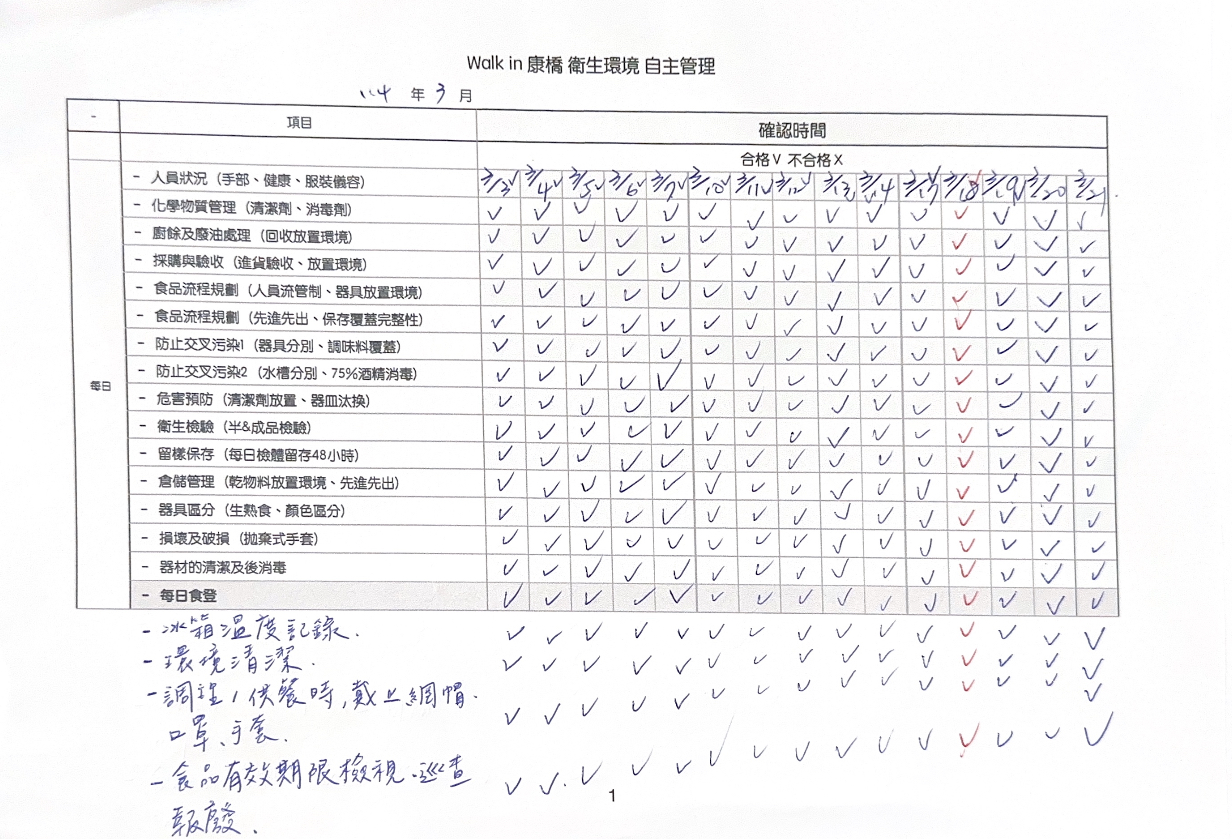 Walk in 康橋 衛生環境 自主管理
114 年 3 月
- 項目 確認時間
合格V 不合格X
- 人員狀況（手部、健康、服裝儀容） 3/3 ✓ 3/4 ✓ 3/5 ✓ 3/6 ✓ 3/7 ✓ 3/10 ✓ 3/11 ✓ 3/12 ✓ 3/13 3/14 3/17 ✓ 3/18 ✓ 3/19 ✓ 3/20 3/21
- 化學物質管理（清潔劑、消毒劑） ✓ ✓ ✓ ✓ ✓ ✓ ✓ ✓ ✓ ✓ ✓ ✓ ✓ ✓ ✓
- 廚餘及廢油處理（回收放置環境） ✓ ✓ ✓ ✓ ✓ ✓ ✓ ✓ ✓ ✓ ✓ ✓ ✓ ✓ ✓
- 採購與驗收（進貨驗收、放置環境） ✓ ✓ ✓ ✓ ✓ ✓ ✓ ✓ ✓ ✓ ✓ ✓ ✓ ✓ ✓
- 食品流程規劃（人員流管制、器具放置環境） ✓ ✓ ✓ ✓ ✓ ✓ ✓ ✓ ✓ ✓ ✓ ✓ ✓ ✓ ✓
- 食品流程規劃（先進先出、保存覆蓋完整性） ✓ ✓ ✓ ✓ ✓ ✓ ✓ ✓ ✓ ✓ ✓ ✓ ✓ ✓ ✓
- 防止交叉污染1（器具分別、調味料覆蓋） ✓ ✓ ✓ ✓ ✓ ✓ ✓ ✓ ✓ ✓ ✓ ✓ ✓ ✓ ✓
每日 - 防止交叉污染2（水槽分別、75%酒精消毒） ✓ ✓ ✓ ✓ ✓ ✓ ✓ ✓ ✓ ✓ ✓ ✓ ✓ ✓ ✓
- 危害預防（清潔劑放置、器皿汰換） ✓ ✓ ✓ ✓ ✓ ✓ ✓ ✓ ✓ ✓ ✓ ✓ ✓ ✓ ✓
- 衛生檢驗（半&成品檢驗） ✓ ✓ ✓ ✓ ✓ ✓ ✓ ✓ ✓ ✓ ✓ ✓ ✓ ✓ ✓
- 留樣保存（每日檢體留存48小時） ✓ ✓ ✓ ✓ ✓ ✓ ✓ ✓ ✓ ✓ ✓ ✓ ✓ ✓ ✓
- 倉儲管理（乾物料放置環境、先進先出） ✓ ✓ ✓ ✓ ✓ ✓ ✓ ✓ ✓ ✓ ✓ ✓ ✓ ✓ ✓
- 器具區分（生熟食、顏色區分） ✓ ✓ ✓ ✓ ✓ ✓ ✓ ✓ ✓ ✓ ✓ ✓ ✓ ✓ ✓
- 損壞及破損（拋棄式手套） ✓ ✓ ✓ ✓ ✓ ✓ ✓ ✓ ✓ ✓ ✓ ✓ ✓ ✓ ✓
- 器材的清潔及後消毒 ✓ ✓ ✓ ✓ ✓ ✓ ✓ ✓ ✓ ✓ ✓ ✓ ✓ ✓ ✓
- 每日食登 ✓ ✓ ✓ ✓ ✓ ✓ ✓ ✓ ✓ ✓ ✓ ✓ ✓ ✓ ✓
- 冰箱溫度記錄. ✓ ✓ ✓ ✓ ✓ ✓ ✓ ✓ ✓ ✓ ✓ ✓ ✓ ✓ ✓
- 環境清潔. ✓ ✓ ✓ ✓ ✓ ✓ ✓ ✓ ✓ ✓ ✓ ✓ ✓ ✓ ✓
- 調理/供餐時,戴上網帽. ✓ ✓ ✓ ✓ ✓ ✓ ✓ ✓ ✓ ✓ ✓ ✓ ✓ ✓ ✓
口罩、手套.
- 食品有效期限檢視.巡查 ✓ ✓ ✓ ✓ ✓ ✓ ✓ ✓ ✓ ✓ ✓ ✓ ✓ ✓ ✓
報廢.
1